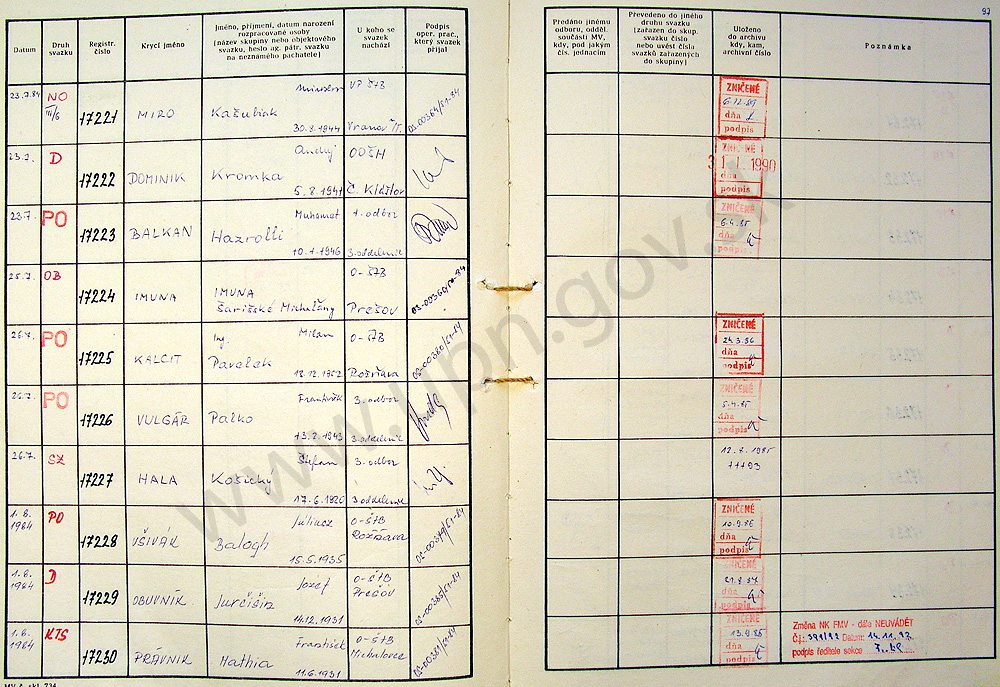 97
Datum
Druh svazku
Registr. číslo
Krycí jméno
Jméno, příjmení, datum narození
rozpracované osoby
(název skupiny nebo objektového
svazku, heslo ag. pátr. svazku
na neznámého pachatele)
U koho se
svazek
nachází
Podpis
oper. prac.,
který svazek
přijal
Předáno jinému
odboru, odděl.
součásti MV,
kdy, pod jakým
čís. jednacím
Převedeno do jiného
druhu svazku
(zařazen do skup.
svazku číslo
nebo uvést čísla
svazků zařazených
do skupiny)
Uloženo
do archivu
kdy, kam,
archivní číslo
Poznámka
23.7.84 NO 17221 MIRO Kašubiak Miroslav 30.8.1944 VP ŠTB Vranov n.T.
ZNIČENÉ
6.12.89
dňa
podpis
23.7. D 17222 DOMINIK Kromka Andrej 5.8.1941 ODŠH Č. Kláštor
ZNIČENÉ
31.1.1990
dňa
podpis
23.7. PO 17223 BALKAN Hazrolli Muhamet 10.1.1946 1.odbor 3.oddelenie
ZNIČENÉ
6.4.85
dňa
podpis
25.7. OB 17224 IMUNA IMUNA Šarišské Michaľany O-ŠTB Prešov
26.7. PO 17225 KALCIT Ing. Milan Pavelek 12.12.1952 O-ŠTB Rožňava
ZNIČENÉ
24.3.86
dňa
podpis
26.7. PO 17226 VULGÁR Palko František 13.2.1943 3.odbor 3.oddelenie
ZNIČENÉ
5.4.85
dňa
podpis
26.7. SZ 17227 HALA Košický Štefan 17.6.1926 3.odbor 3.oddelenie
12.8.1985
71793
1.8.1984 PO 17228 VŠIVÁK Balogh Július 15.5.1935 O-ŠTB Rožňava
ZNIČENÉ
10.9.86
dňa
podpis
1.8.1984 D 17229 OBUVNÍK Jurčišin Jozef 14.12.1931 O-ŠTB Prešov
ZNIČENÉ
21.8.87
dňa
podpis
1.8.1984 KTS 17230 PRÁVNIK Mathia František 11.6.1931 O-ŠTB Michalovce
13.9.85
dňa
podpis
Změna NK FMV - dále NEUVÁDĚT
Č.j.: Datum: 14.11.
podpis ředitele sekce
www.upn.gov.sk